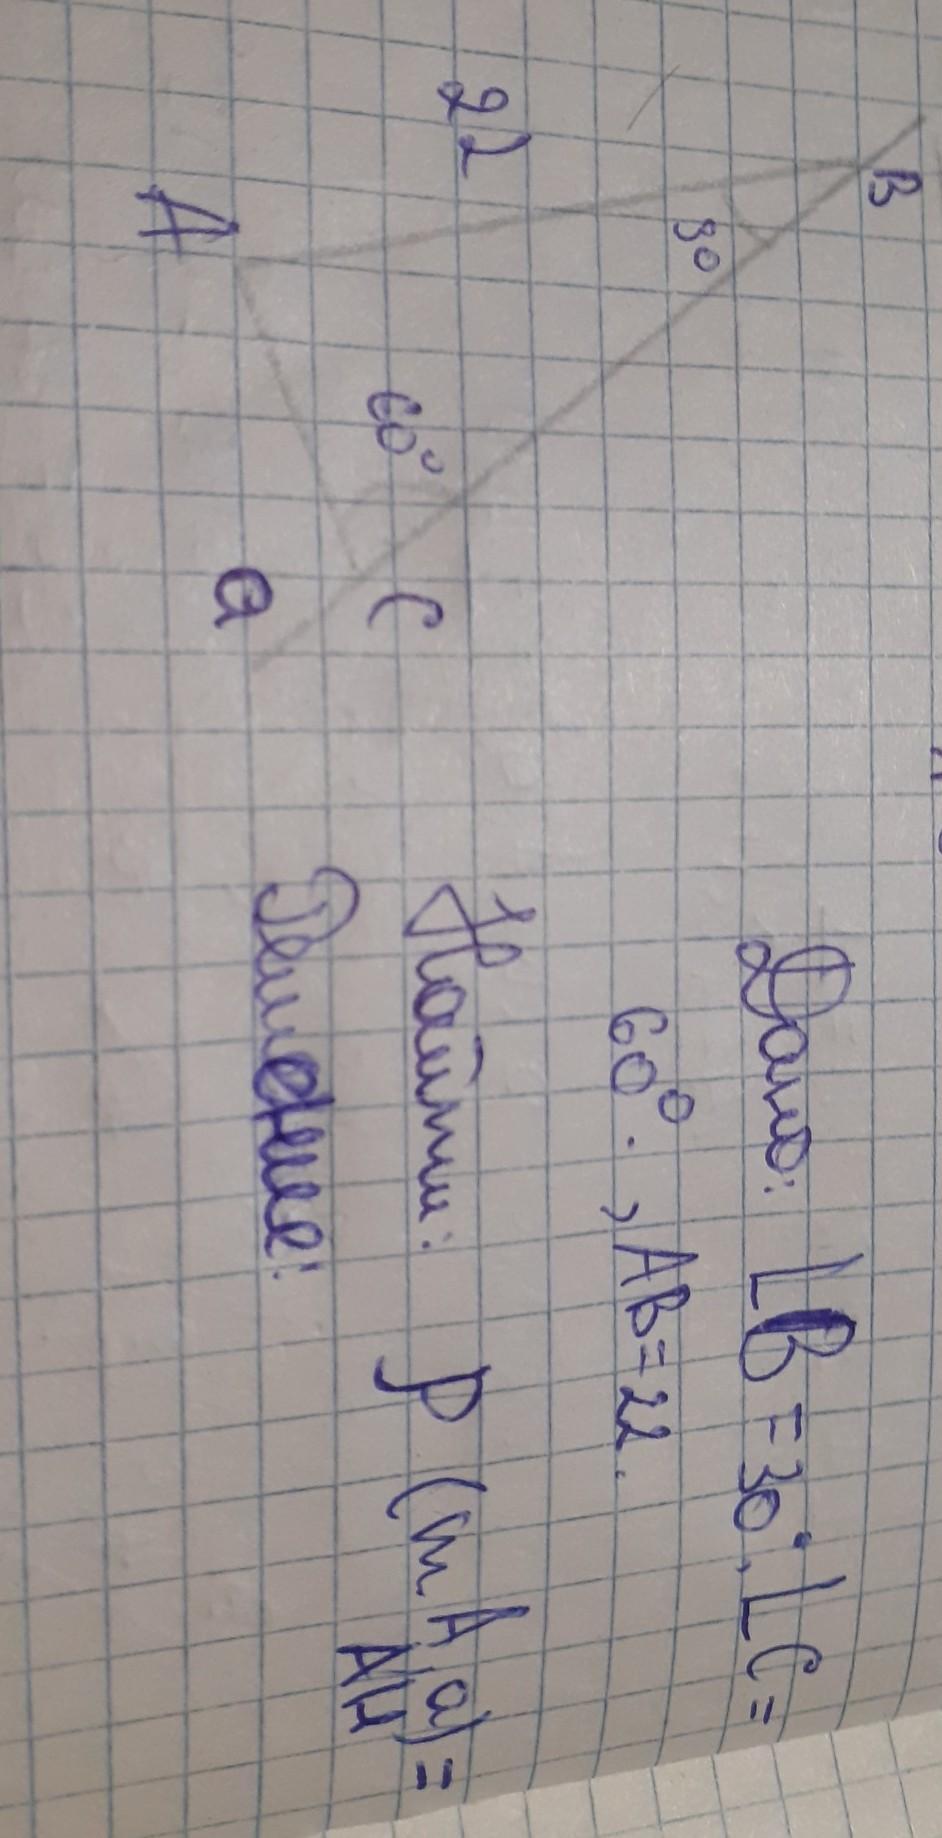 B
30
22
60°
A
C
a
Дано: ∠B = 30°, ∠C =
60°. , AB = 22.
Найти: p (т A, a) =
AH
Решение: